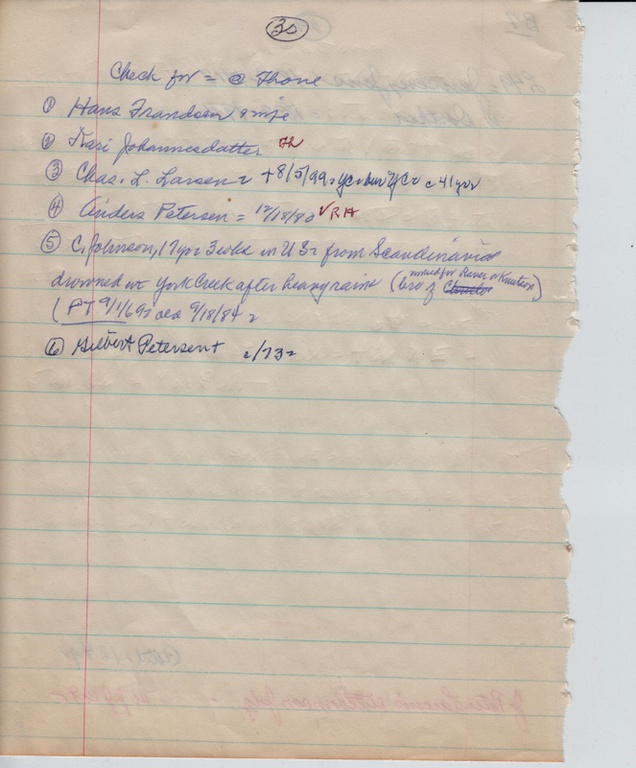 30
Check for = @ Thone
① Hans Frandsen & wife
② Kari Johannesdatter Th
③ Chas. L. Larsen = +8/5/99 = c 41 yrs
④ Anders Petersen = 12/18/80 √RA
⑤ C. Johnson, 17 yrs in US = from Scandinavia
drowned in York Creek after heavy rains (bro of worked for Knutson)
(PT 9/1/69 = 9/18/84 =
⑥ Gilbert Petersen + c/73 =